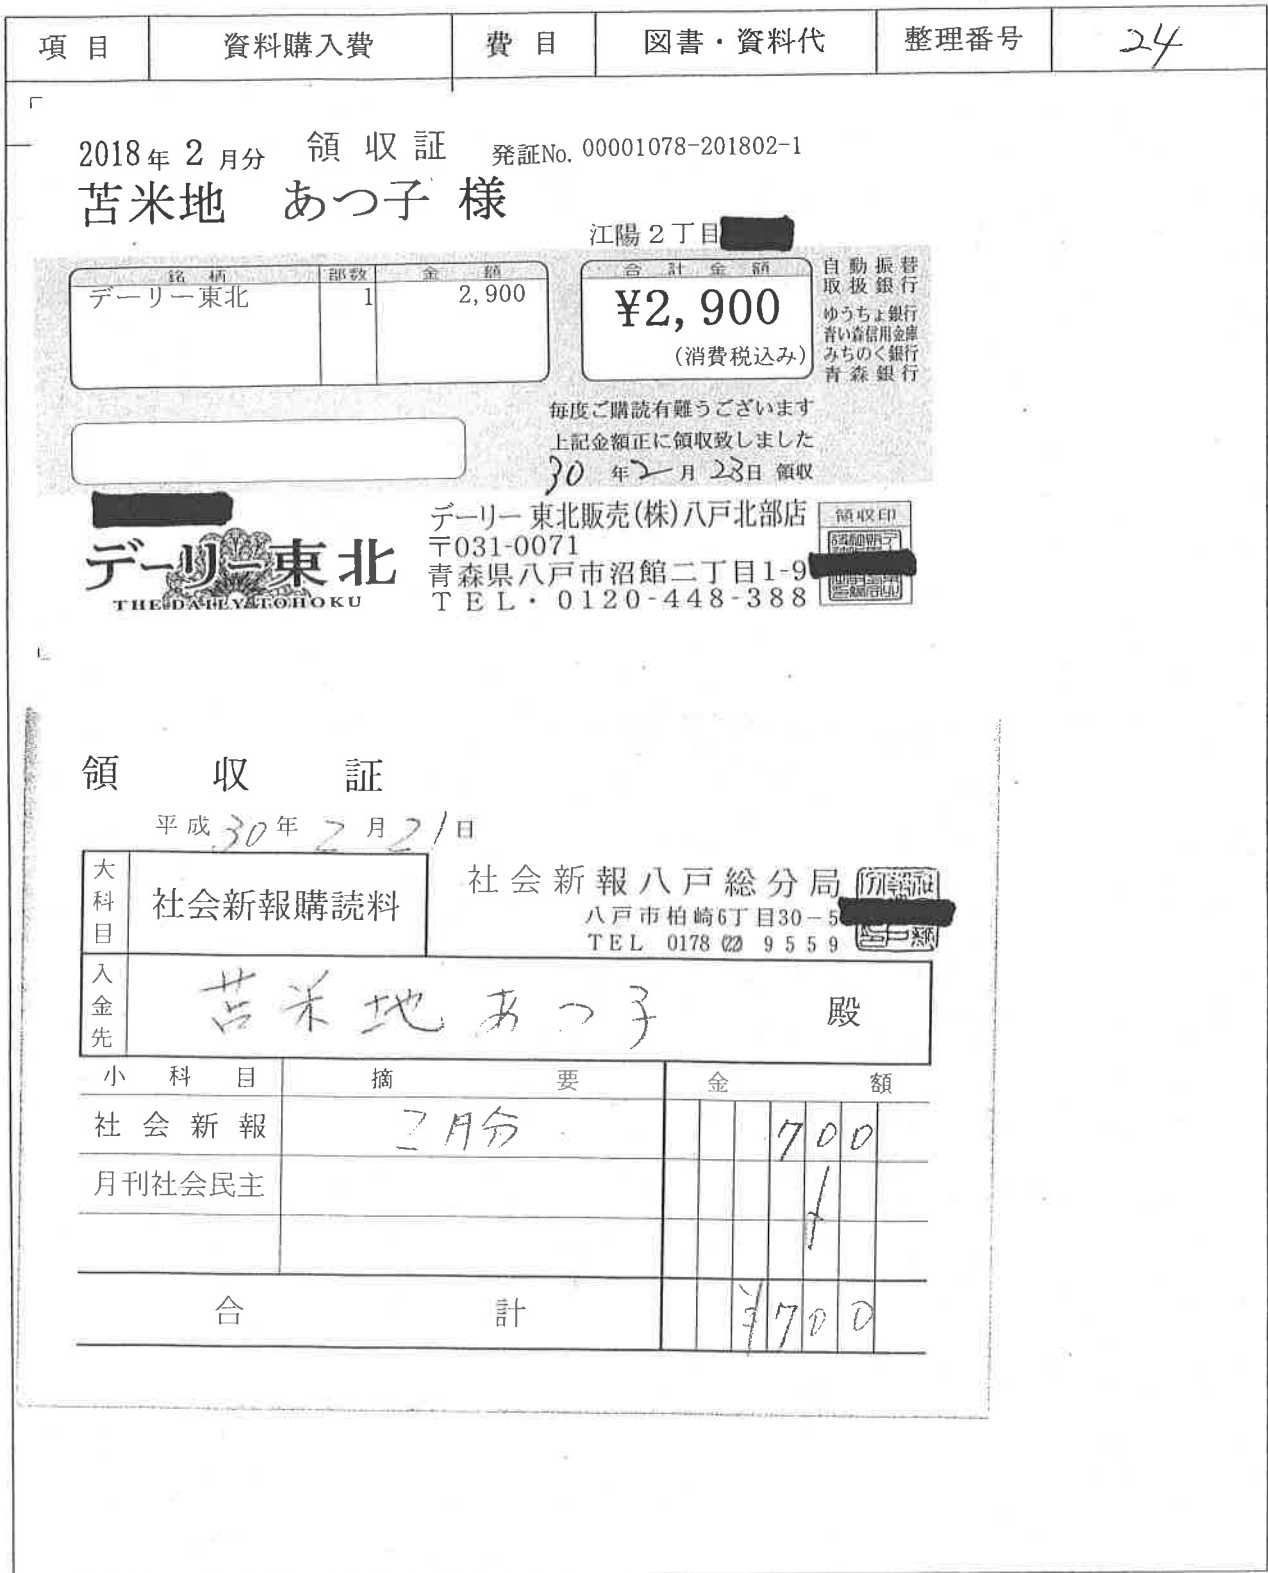 項目 資料購入費 費目 図書・資料代 整理番号 24
2018年 2月分 領収証 発証No. 00001078-201802-1
苫米地 あつ子 様
江陽2丁目
銘柄 部数 金額
デーリー東北 1 2,900
合計金額
¥2,900
(消費税込み)
自動振替
取扱銀行
ゆうちょ銀行
青い森信用金庫
みちのく銀行
青森銀行
毎度ご購読有難うございます
上記金額正に領収致しました
30年2月23日 領収
デーリー東北
THE DAILY TOHOKU
デーリー東北販売(株)八戸北部店
〒031-0071
青森県八戸市沼館二丁目1-9
TEL・0120-448-388
領収印
領収証
平成30年2月21日
大科目 社会新報購読料
社会新報八戸総分局
八戸市柏崎6丁目30-5
TEL 0178 (22) 9559
入金先 苫米地あつ子 殿
小科目 摘要 金額
社会新報 2月分 700
月刊社会民主
合計 ¥700